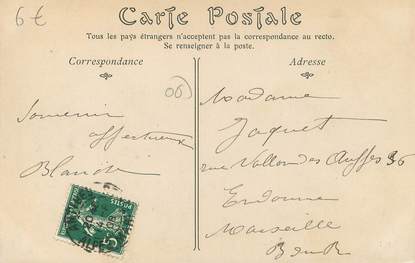 6€
Carte Postale
Tous les pays étrangers n'acceptent pas la correspondance au recto.
Se renseigner à la poste.
Correspondance
Adresse
06
Souvenir
affectueux
Blanche
Madame
Jaquet
rue Vallon des Auffes 36
Endoume
Marseille
B du R
POSTES
5